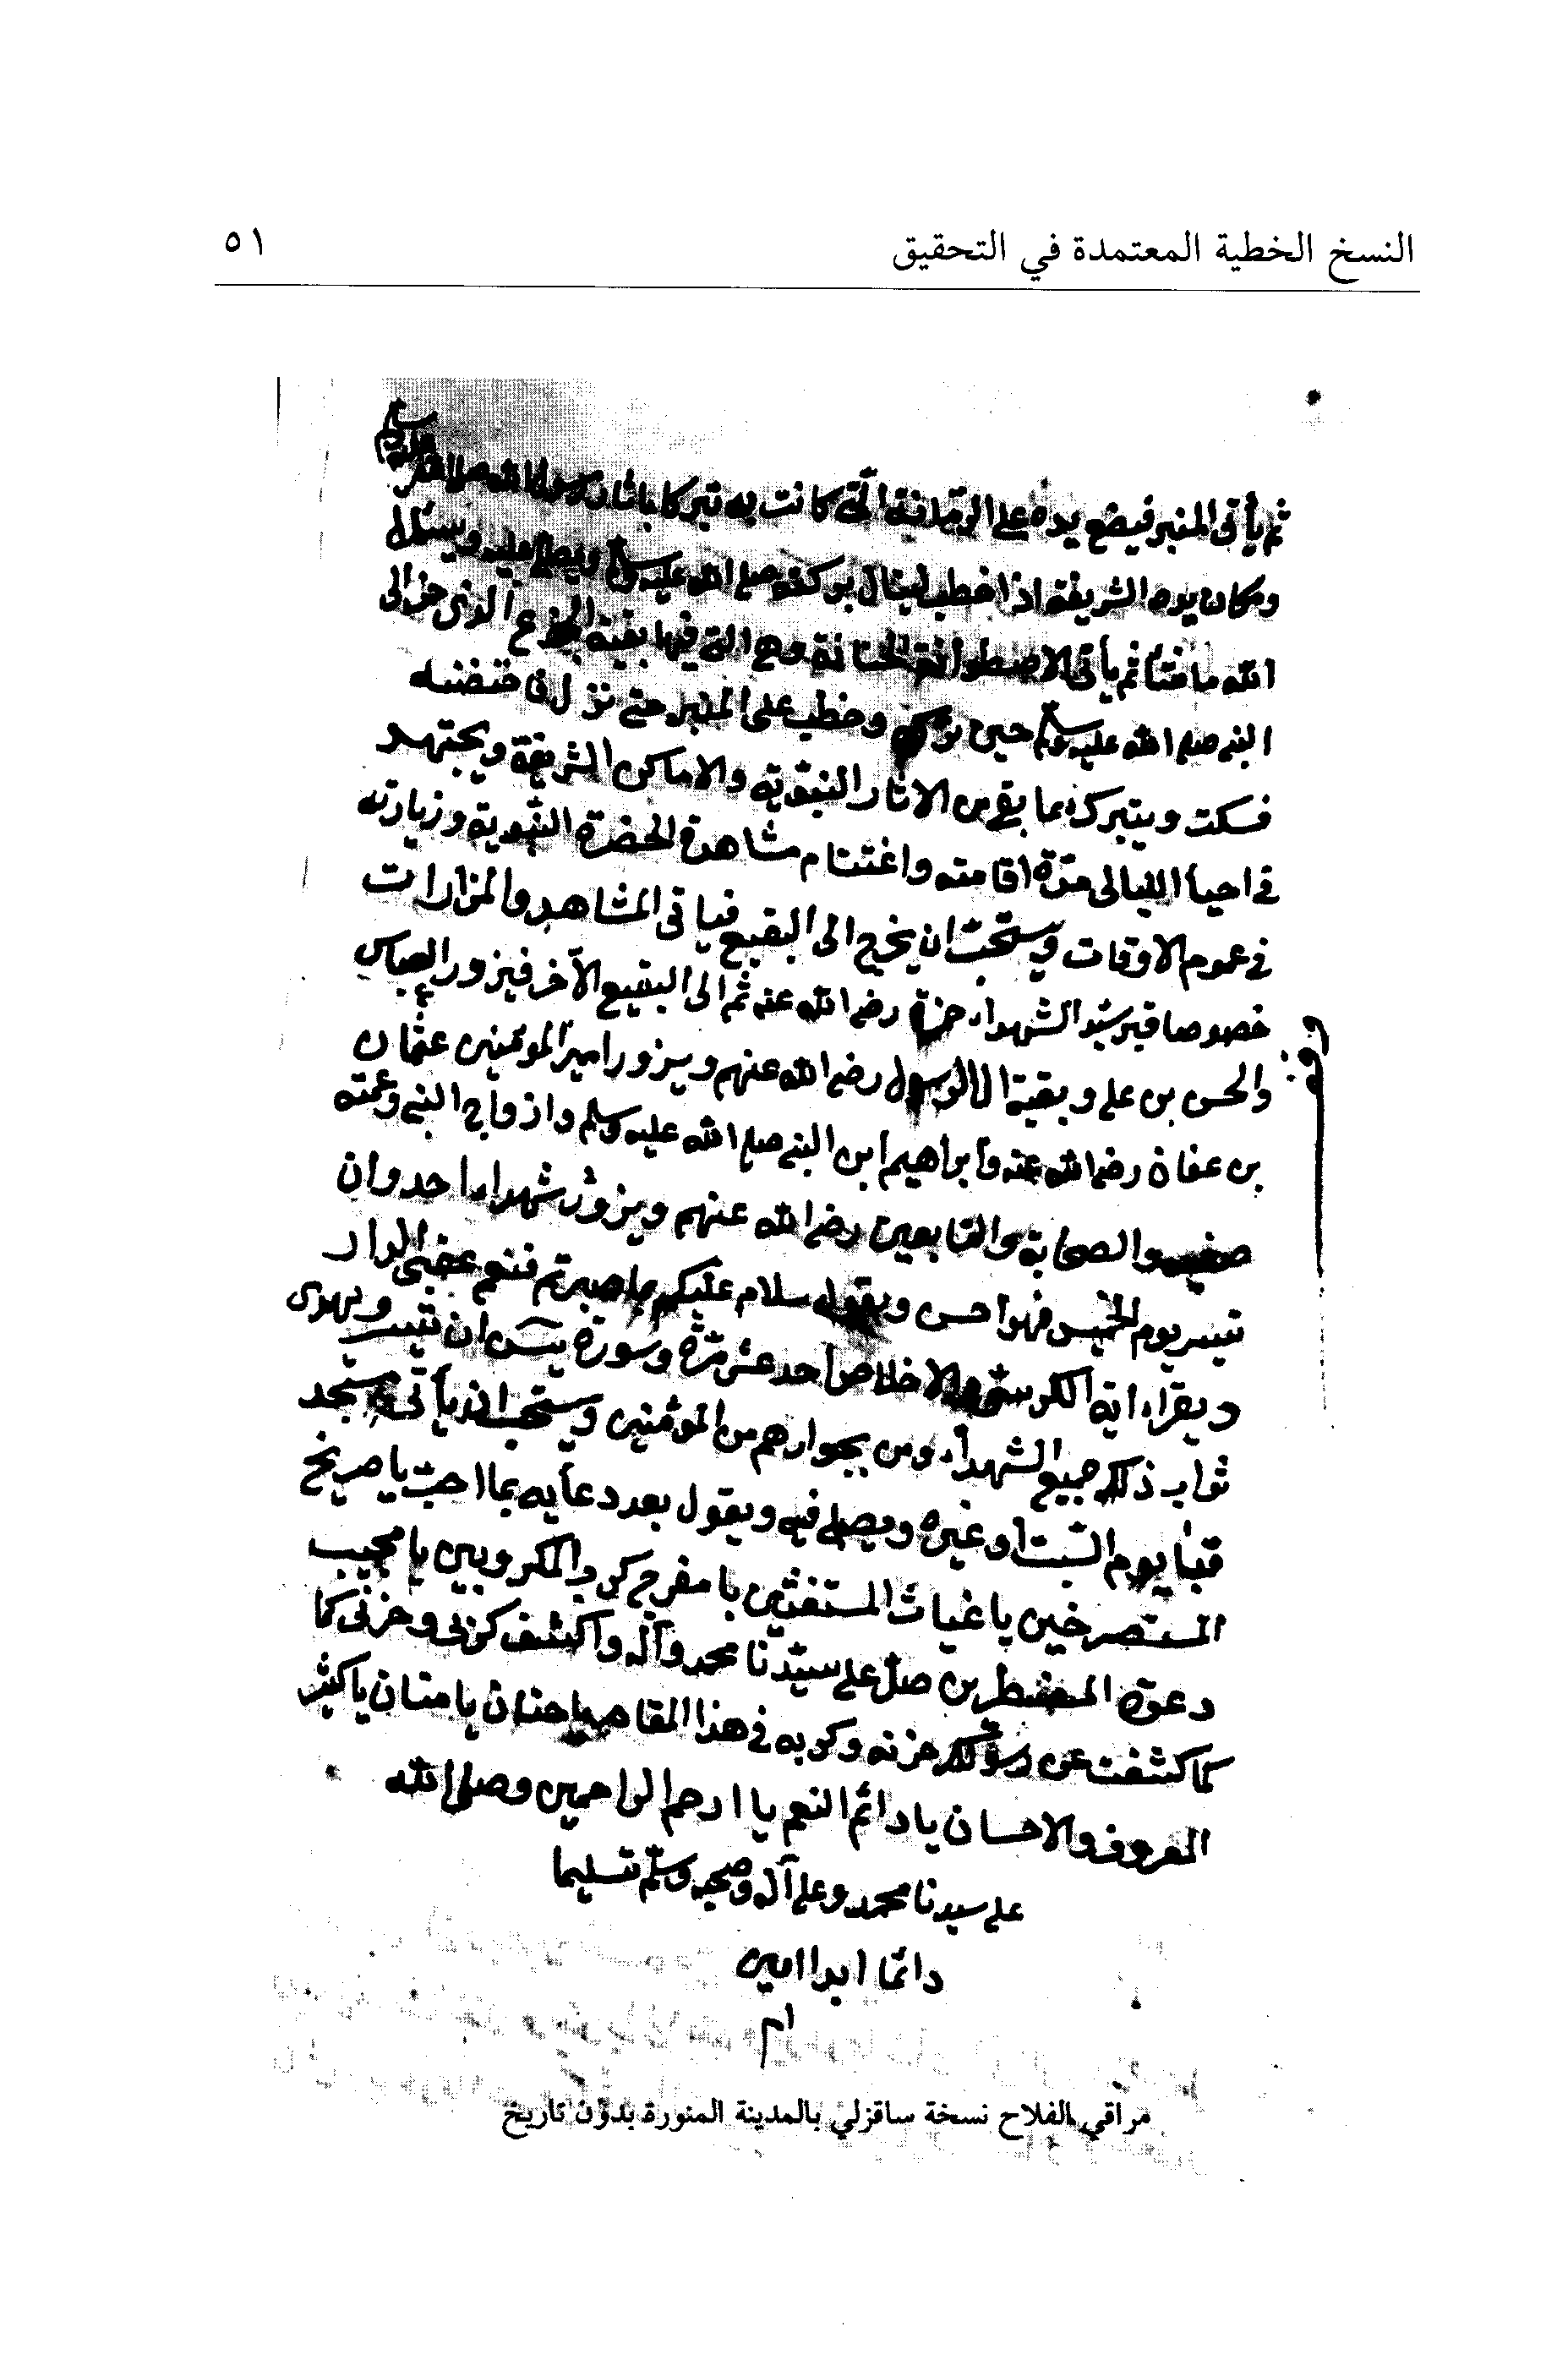 النسخ الخطية المعتمدة في التحقيق
٥١
ثم يأتى المنبر فيضع يده على الرمانة التى كانت به تبركا باثار رسول الله صلى الله عليه وسلم
ومكان يده الشريفة اذا خطب لينال بركته صلى الله عليه وسلم ويصلى عليه ويسئال
الله ما شاء ثم يأتى الاصطوانة الحنانة وهى التى فيها بقية الجذع الذى حن الى
النبى صلى الله عليه وسلم حين تركه وخطب على المنبر حتى نزل فاحتضنه
فسكت ويتبرك بما بقى من الاثار النبوية والاماكن الشريفة ويجتهد
فى احياء الليالى مدة اقامته واغتنام مشاهدة الحضرة النبوية وزيارته
فى عموم الاوقات ويستحب ان يخرج الى البقيع فياتى المشاهد والمزارات
خصوصا قبر سيد الشهداء حمزة رضى الله عنه ثم الى البقيع الآخر فيزور العباس
والحسن بن على وبقية ال الرسول رضى الله عنهم ويزور امير المومنين عثمان
بن عفان رضى الله عنه وابراهيم ابن النبى صلى الله عليه وسلم وازواج النبى وعمته
صفيه والصحابة والتابعين رضى الله عنهم ويزور شهداء احد وان
تيسر يوم الخميس فهوا حسن ويقول سلام عليكم بما صبرتم فنعم عقبى الدار
ويقراء اية الكرسى والاخلاص احد عشر مرة وسورة يس ان تيسر ويهدى
ثواب ذلك جميع الشهداء ومن بجوارهم من المؤمنين ويستحب ان يأتى مسجد
قباء يوم السبت او غيره ويصلى فيه ويقول بعد دعايه بما احب يا صريخ
المستصرخين يا غياث المستغثين يا مفرج كرب المكروبين يا مجيب
دعوة المضطرين صل على سيدنا محمد وآله واكشف كربى وحزنى كما
كما كشفت عن رسولك حزنه وكربه فى هذا المقام يا حنان يا منان يا كثير
المعروف والاحسان يا دائم النعم يا ارحم الراحمين وصلى الله
على سيدنا محمد وعلى آله وصحبه وسلم تسليما
دائما ابدا امين
ام
مراقي الفلاح نسخة ساقزلي بالمدينة المنورة بدون تاريخ